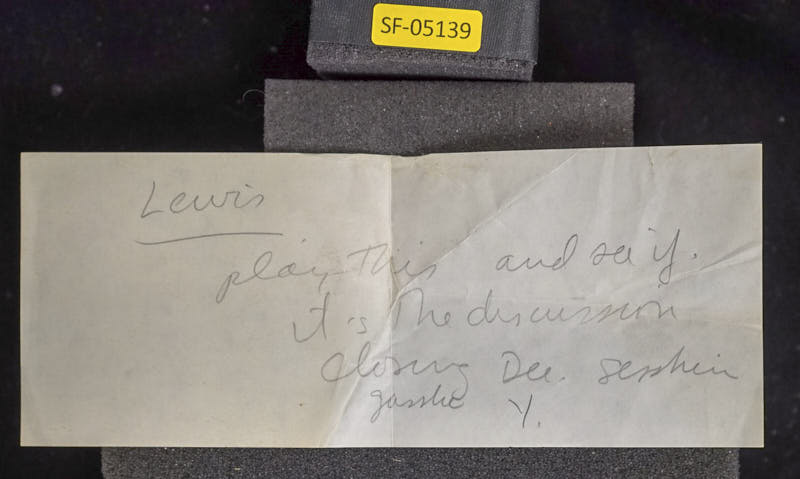 SF-05139
Lewis
play this and see if.
it is the discussion
closing Dec. sesshin
gassho Y.